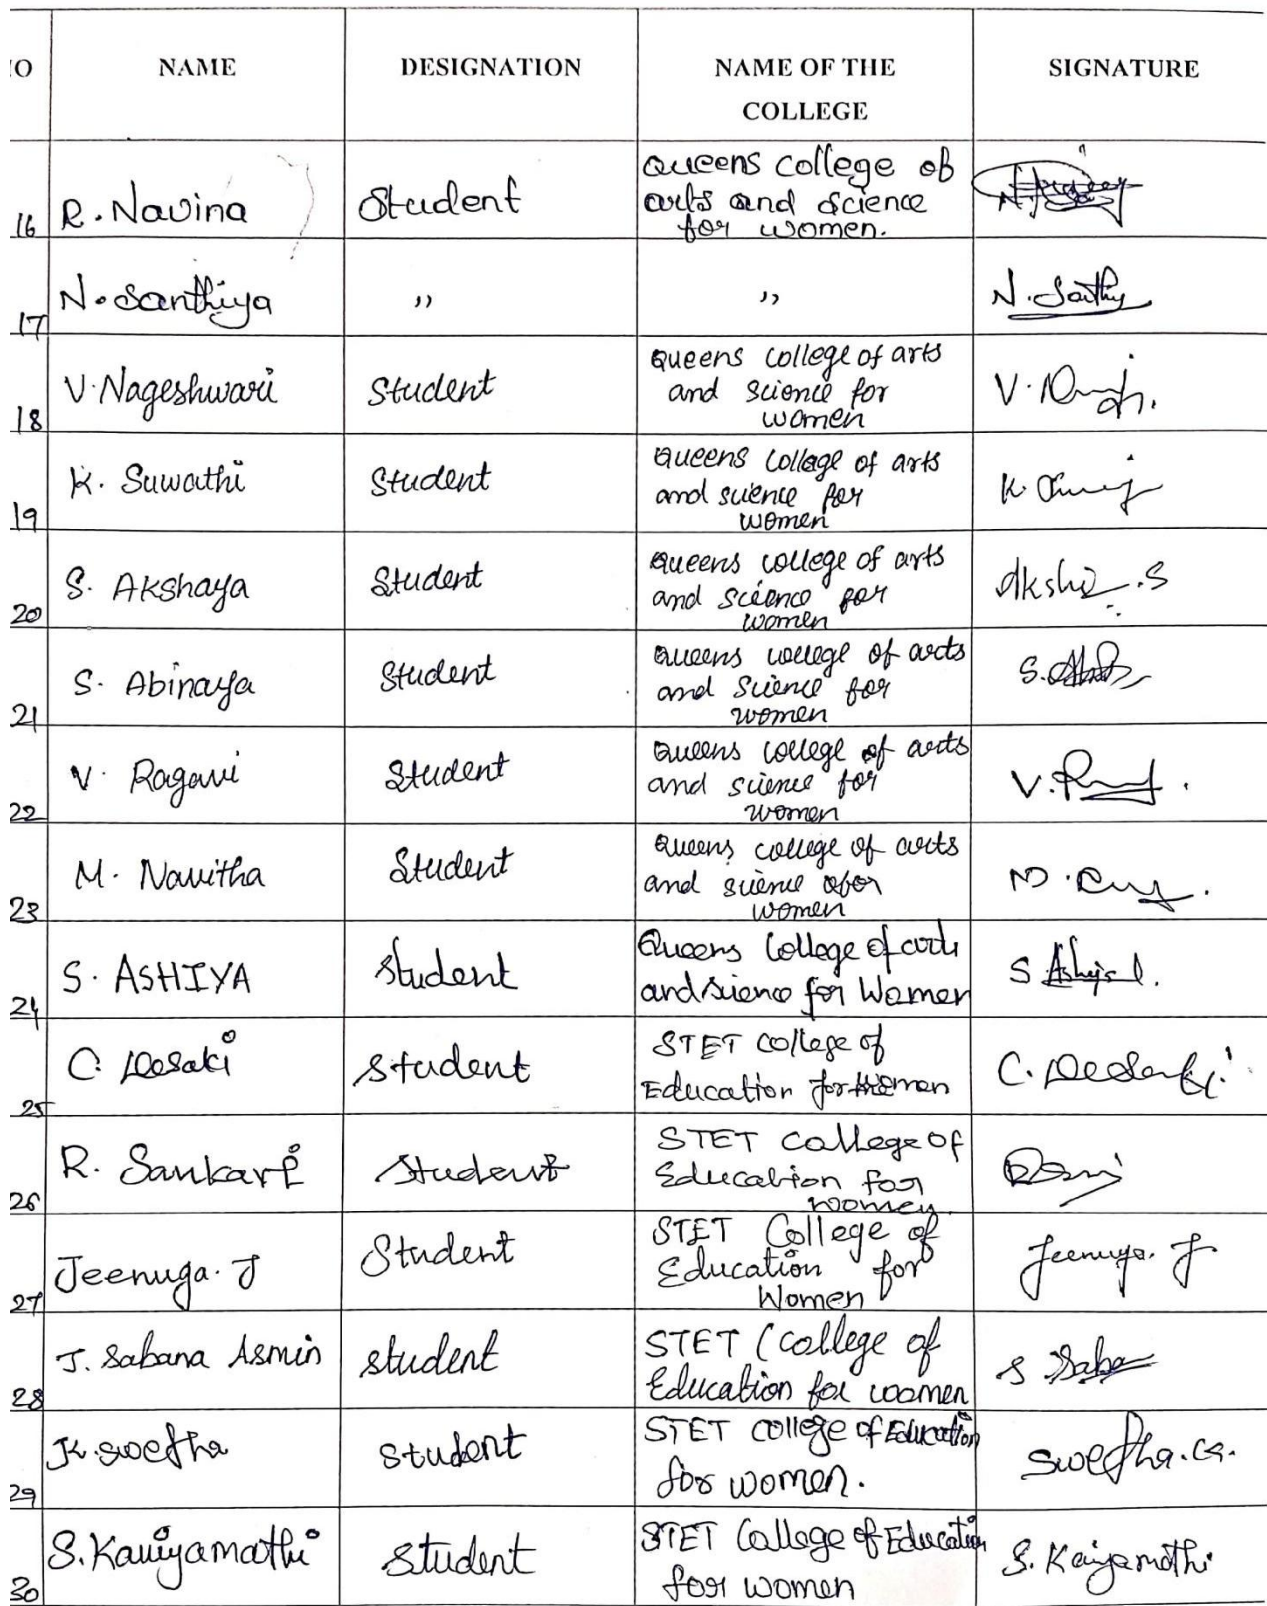 O NAME DESIGNATION NAME OF THE SIGNATURE
COLLEGE
16 R. Navina Student Queens college of
arts and science
for women.
17 N. Santhiya ,, ,, N. Santhy
18 V. Nageshwari Student Queens college of arts
and science for
women
19 K. Suwathi Student Queens college of arts
and science for
women
20 S. Akshaya Student Queens college of arts Akshi .S
and science for
women
21 S. Abinaya Student Queens college of arts
and science for
women
22 V. Ragavi Student Queens college of arts
and science for
women
23 M. Navitha Student Queens college of arts
and science for
women
24 S. ASHIYA Student Queens College of arts
and science for Women
25 C. Desaki Student STET College of C. Desaki
Education for Women
26 R. Sankari Student STET College of
Education for
women
27 Jeenuga. J Student STET College of Jeenuga. J
Education for
Women
28 J. Sabana Asmin student STET (College of S Saba
Education for women
29 K. swetha Student STET College of Education swetha.
for women.
30 S. Kaniyamathi Student STET College of Education S. Kaiyamathi
for women